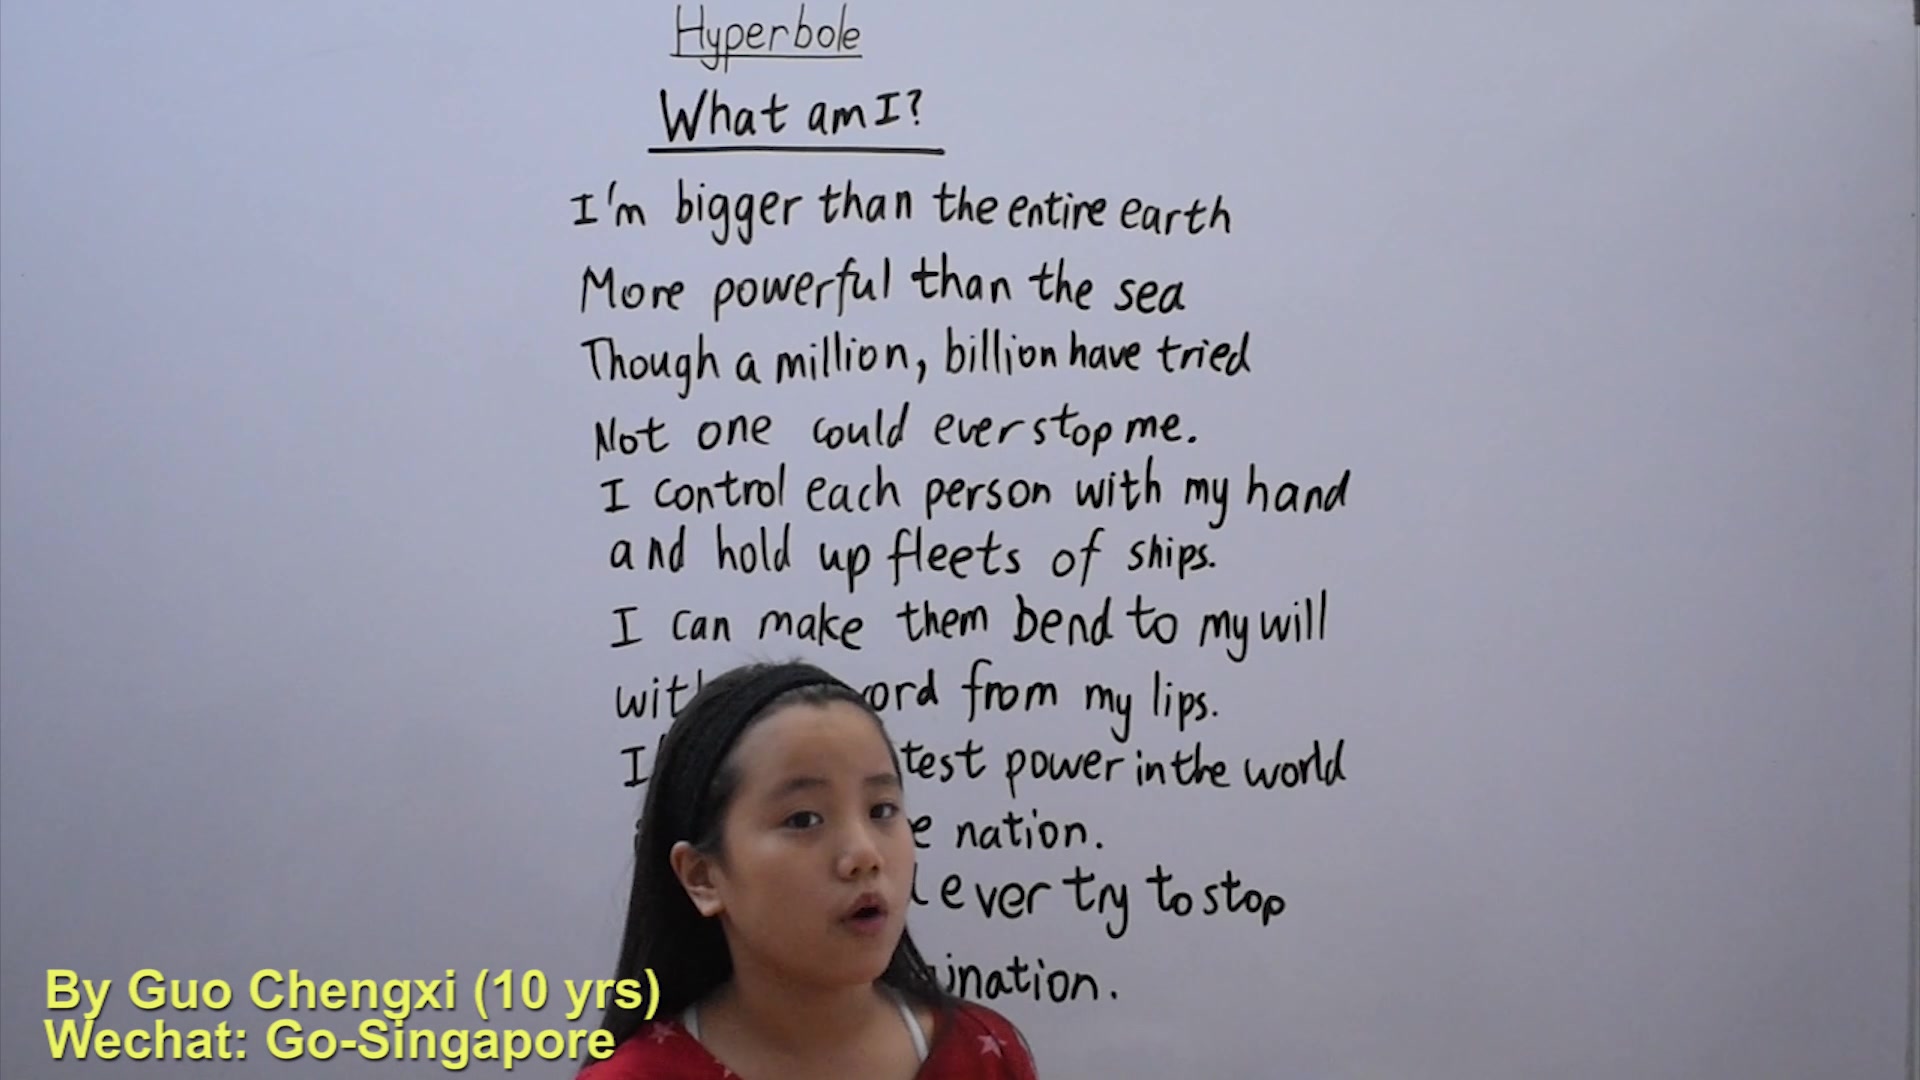 Hyperbole
What am I?
I'm bigger than the entire earth
More powerful than the sea
Though a million, billion have tried
Not one could ever stop me.
I control each person with my hand
and hold up fleets of ships.
I can make them bend to my will
from my lips.
I power in the world
nation.
ever try to stop
By Guo Chengxi (10 yrs)
Wechat: Go-Singapore